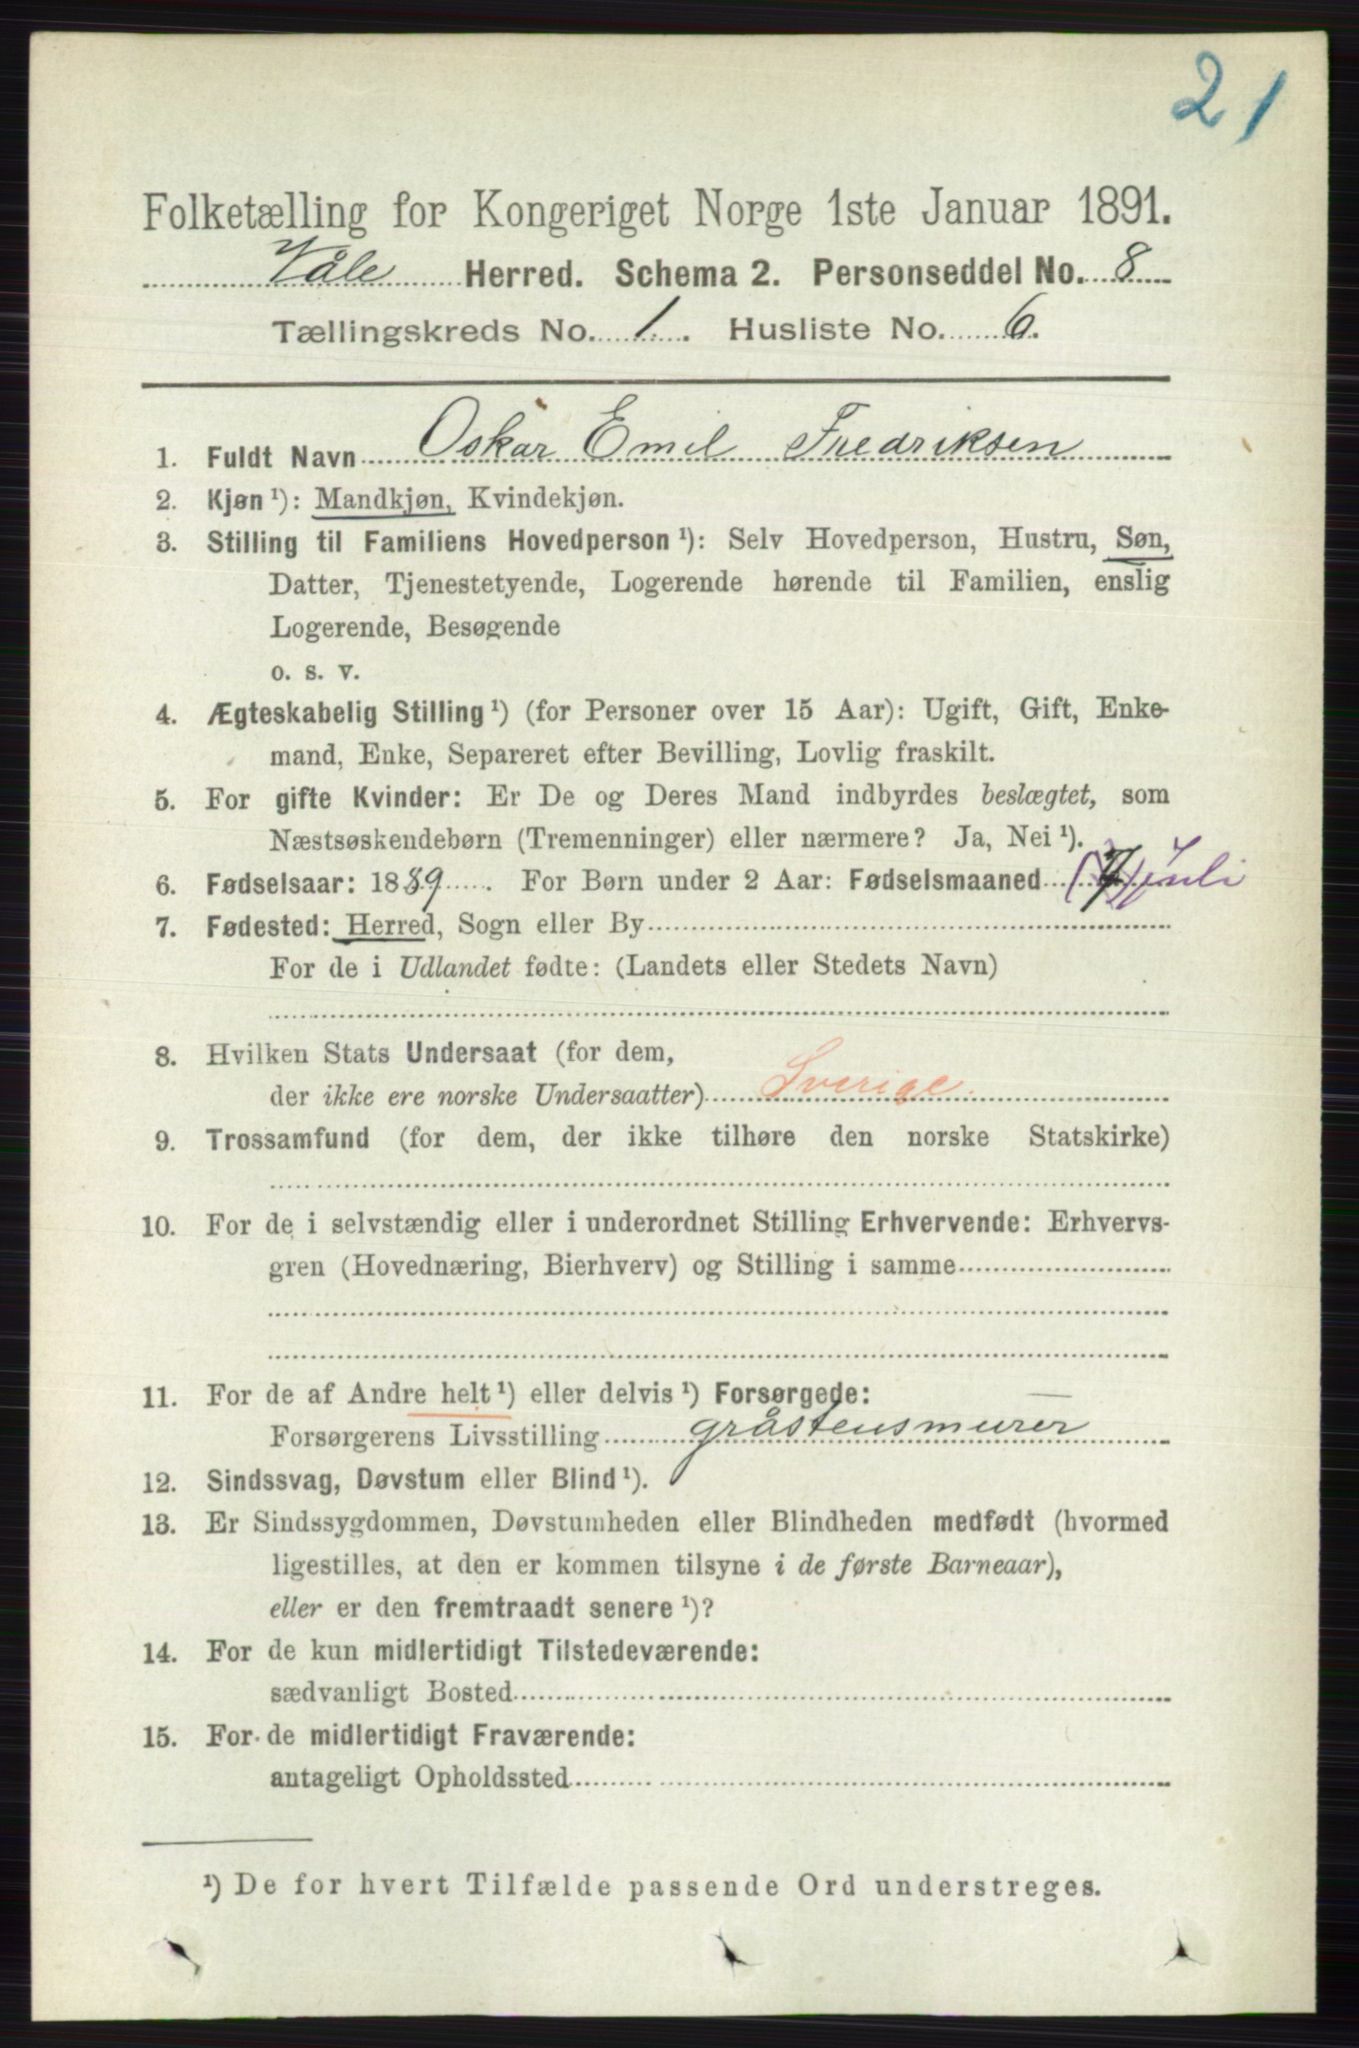 21
Folketælling for Kongeriget Norge 1ste Januar 1891.
Våle Herred. Schema 2. Personseddel No. 8
Tællingskreds No. 1. Husliste No. 6.
1. Fuldt Navn Oskar Emil Fredriksen
2. Kjøn ¹): Mandkjøn, Kvindekjøn.
3. Stilling til Familiens Hovedperson ¹): Selv Hovedperson, Hustru, Søn,
Datter, Tjenestetyende, Logerende hørende til Familien, enslig
Logerende, Besøgende
o. s. v.
4. Ægteskabelig Stilling ¹) (for Personer over 15 Aar): Ugift, Gift, Enke-
mand, Enke, Separeret efter Bevilling, Lovlig fraskilt.
5. For gifte Kvinder: Er De og Deres Mand indbyrdes beslægtet, som
Næstsøskendebørn (Tremenninger) eller nærmere? Ja, Nei ¹).
6. Fødselsaar: 1889. For Børn under 2 Aar: Fødselsmaaned (7) juli
7. Fødested: Herred, Sogn eller By
For de i Udlandet fødte: (Landets eller Stedets Navn)
8. Hvilken Stats Undersaat (for dem,
der ikke ere norske Undersaatter) Sverige.
9. Trossamfund (for dem, der ikke tilhøre den norske Statskirke)
10. For de i selvstændig eller i underordnet Stilling Erhvervende: Erhvervs-
gren (Hovednæring, Bierhverv) og Stilling i samme
11. For de af Andre helt ¹) eller delvis ¹) Forsørgede:
Forsørgerens Livsstilling gråstensmurer
12. Sindssvag, Døvstum eller Blind ¹).
13. Er Sindssygdommen, Døvstumheden eller Blindheden medfødt (hvormed
ligestilles, at den er kommen tilsyne i de første Barneaar),
eller er den fremtraadt senere ¹)?
14. For de kun midlertidigt Tilstedeværende:
sædvanligt Bosted
15. For de midlertidigt Fraværende:
antageligt Opholdssted
¹) De for hvert Tilfælde passende Ord understreges.